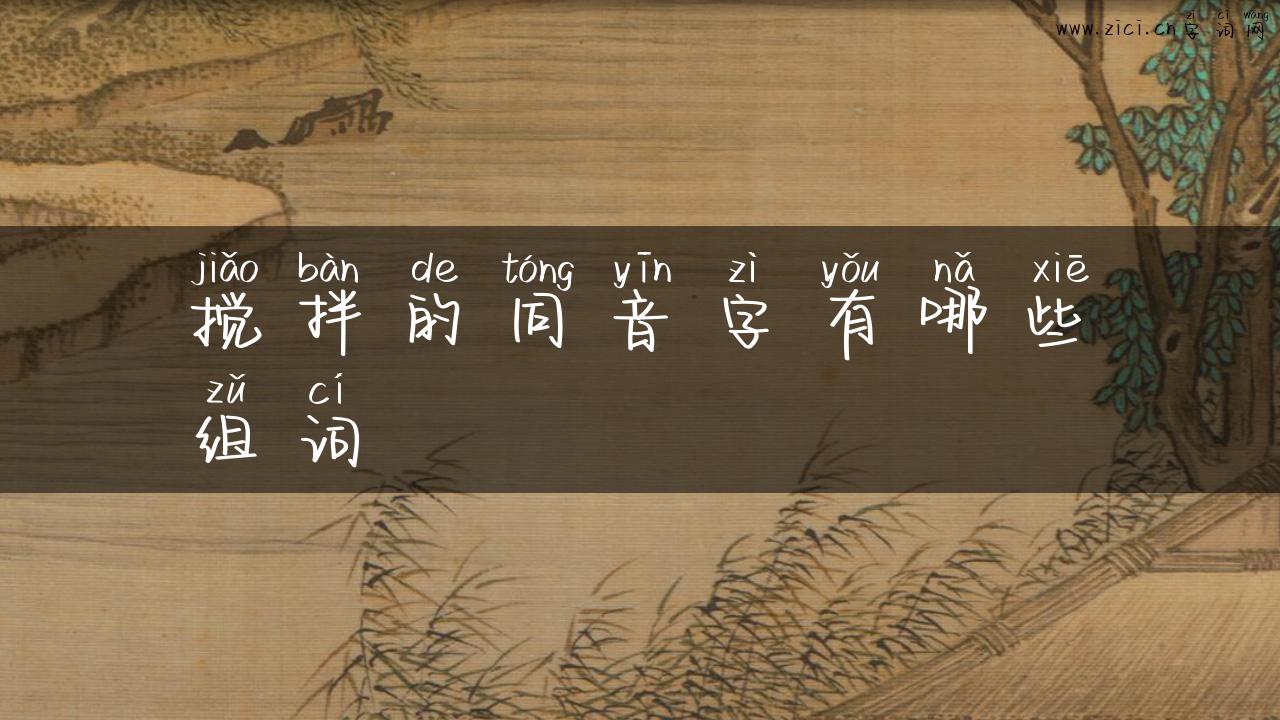 zì cí wǎng
www.zici.cn字词网
jiǎo bàn de tóng yīn zì yǒu nǎ xiē
搅拌的同音字有哪些
zǔ cí
组词